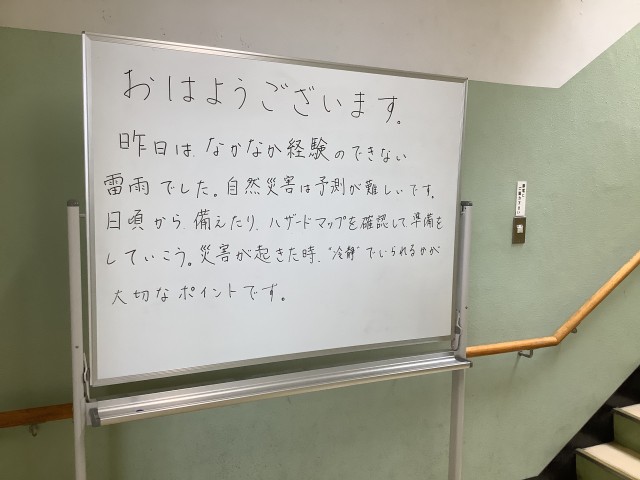 おはようございます。
昨日は、なかなか経験のできない
雷雨でした。自然災害は予測が難しいです。
日頃から、備えたり、ハザードマップを確認して、準備を
していこう。災害が起きた時、"冷静"でいられるかが
大切なポイントです。